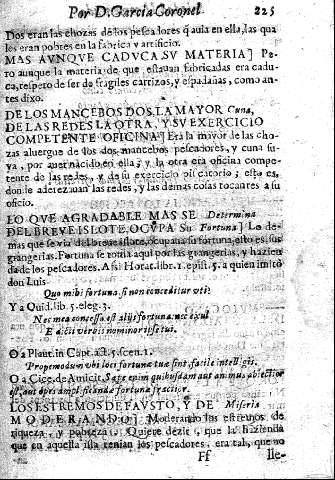 Por D. Garcia Coronel. 225
Dos eran las chozas de los pescadores q̃ auia en ella, las qua
les eran pobres en la fabrica y artificio.
MAS AVNQVE CADVCA SV MATERIA] Pe-
ro aunque la materia de que estauan fabricadas era cadu-
ca, respeto de ser de fragiles carrizos, y espadañas, como an-
tes dixo.
DE LOS MANCEBOS DOS, LA MAYOR Cuna,
DE LAS REDES LA OTRA, Y SV EXERCICIO
COMPETENTE OFICINA] Era la mayor de las cho-
zas aluergue de los dos mancebos pescadores, y cuna su-
ya, por auer nacido en ella; y la otra era oficina compe-
tente de las redes, y de su exercicio piscatorio; esto es,
donde aderezauan las redes, y las demas cosas tocantes a su
oficio.
LO QVE AGRADABLE MAS SE Determina
DEL BREVE ISLOTE, OCVPA Su Fortuna] Lo de-
mas que se via del breue islote, ocupaua su fortuna, esto es, sus
grangerias. Fortuna se toma aqui por las grangerias, y hazien
da de los pescadores. Assi Horat. libr. 1. epist. 5. a quien imitò
don Luis.
Quo mihi fortuna, si non conceditur vti?
Y a Ouid. lib. 5. eleg. 3.
Nec mea concessa est alijs fortuna: nec exul
Edictis verbis nominor ipse tui.
O a Plaut. in Capt. act. 5. scen. 1.
Propemodum vbi loci fortunae tuae sint, facile intelligis.
O a Cice. de Amicit. Saepe enim quibusdam aut animus abiectior
est, aut spes amplificandae fortunae fractior.
LOS ESTREMOS DE FAVSTO, Y DE Miseria
MODERANDO] Moderando los estremos de
riqueza, y pobreza. Quiere dezir, que la hazienda
que en aquella isla tenian los pescadores, era tal, que no
Ff lle-